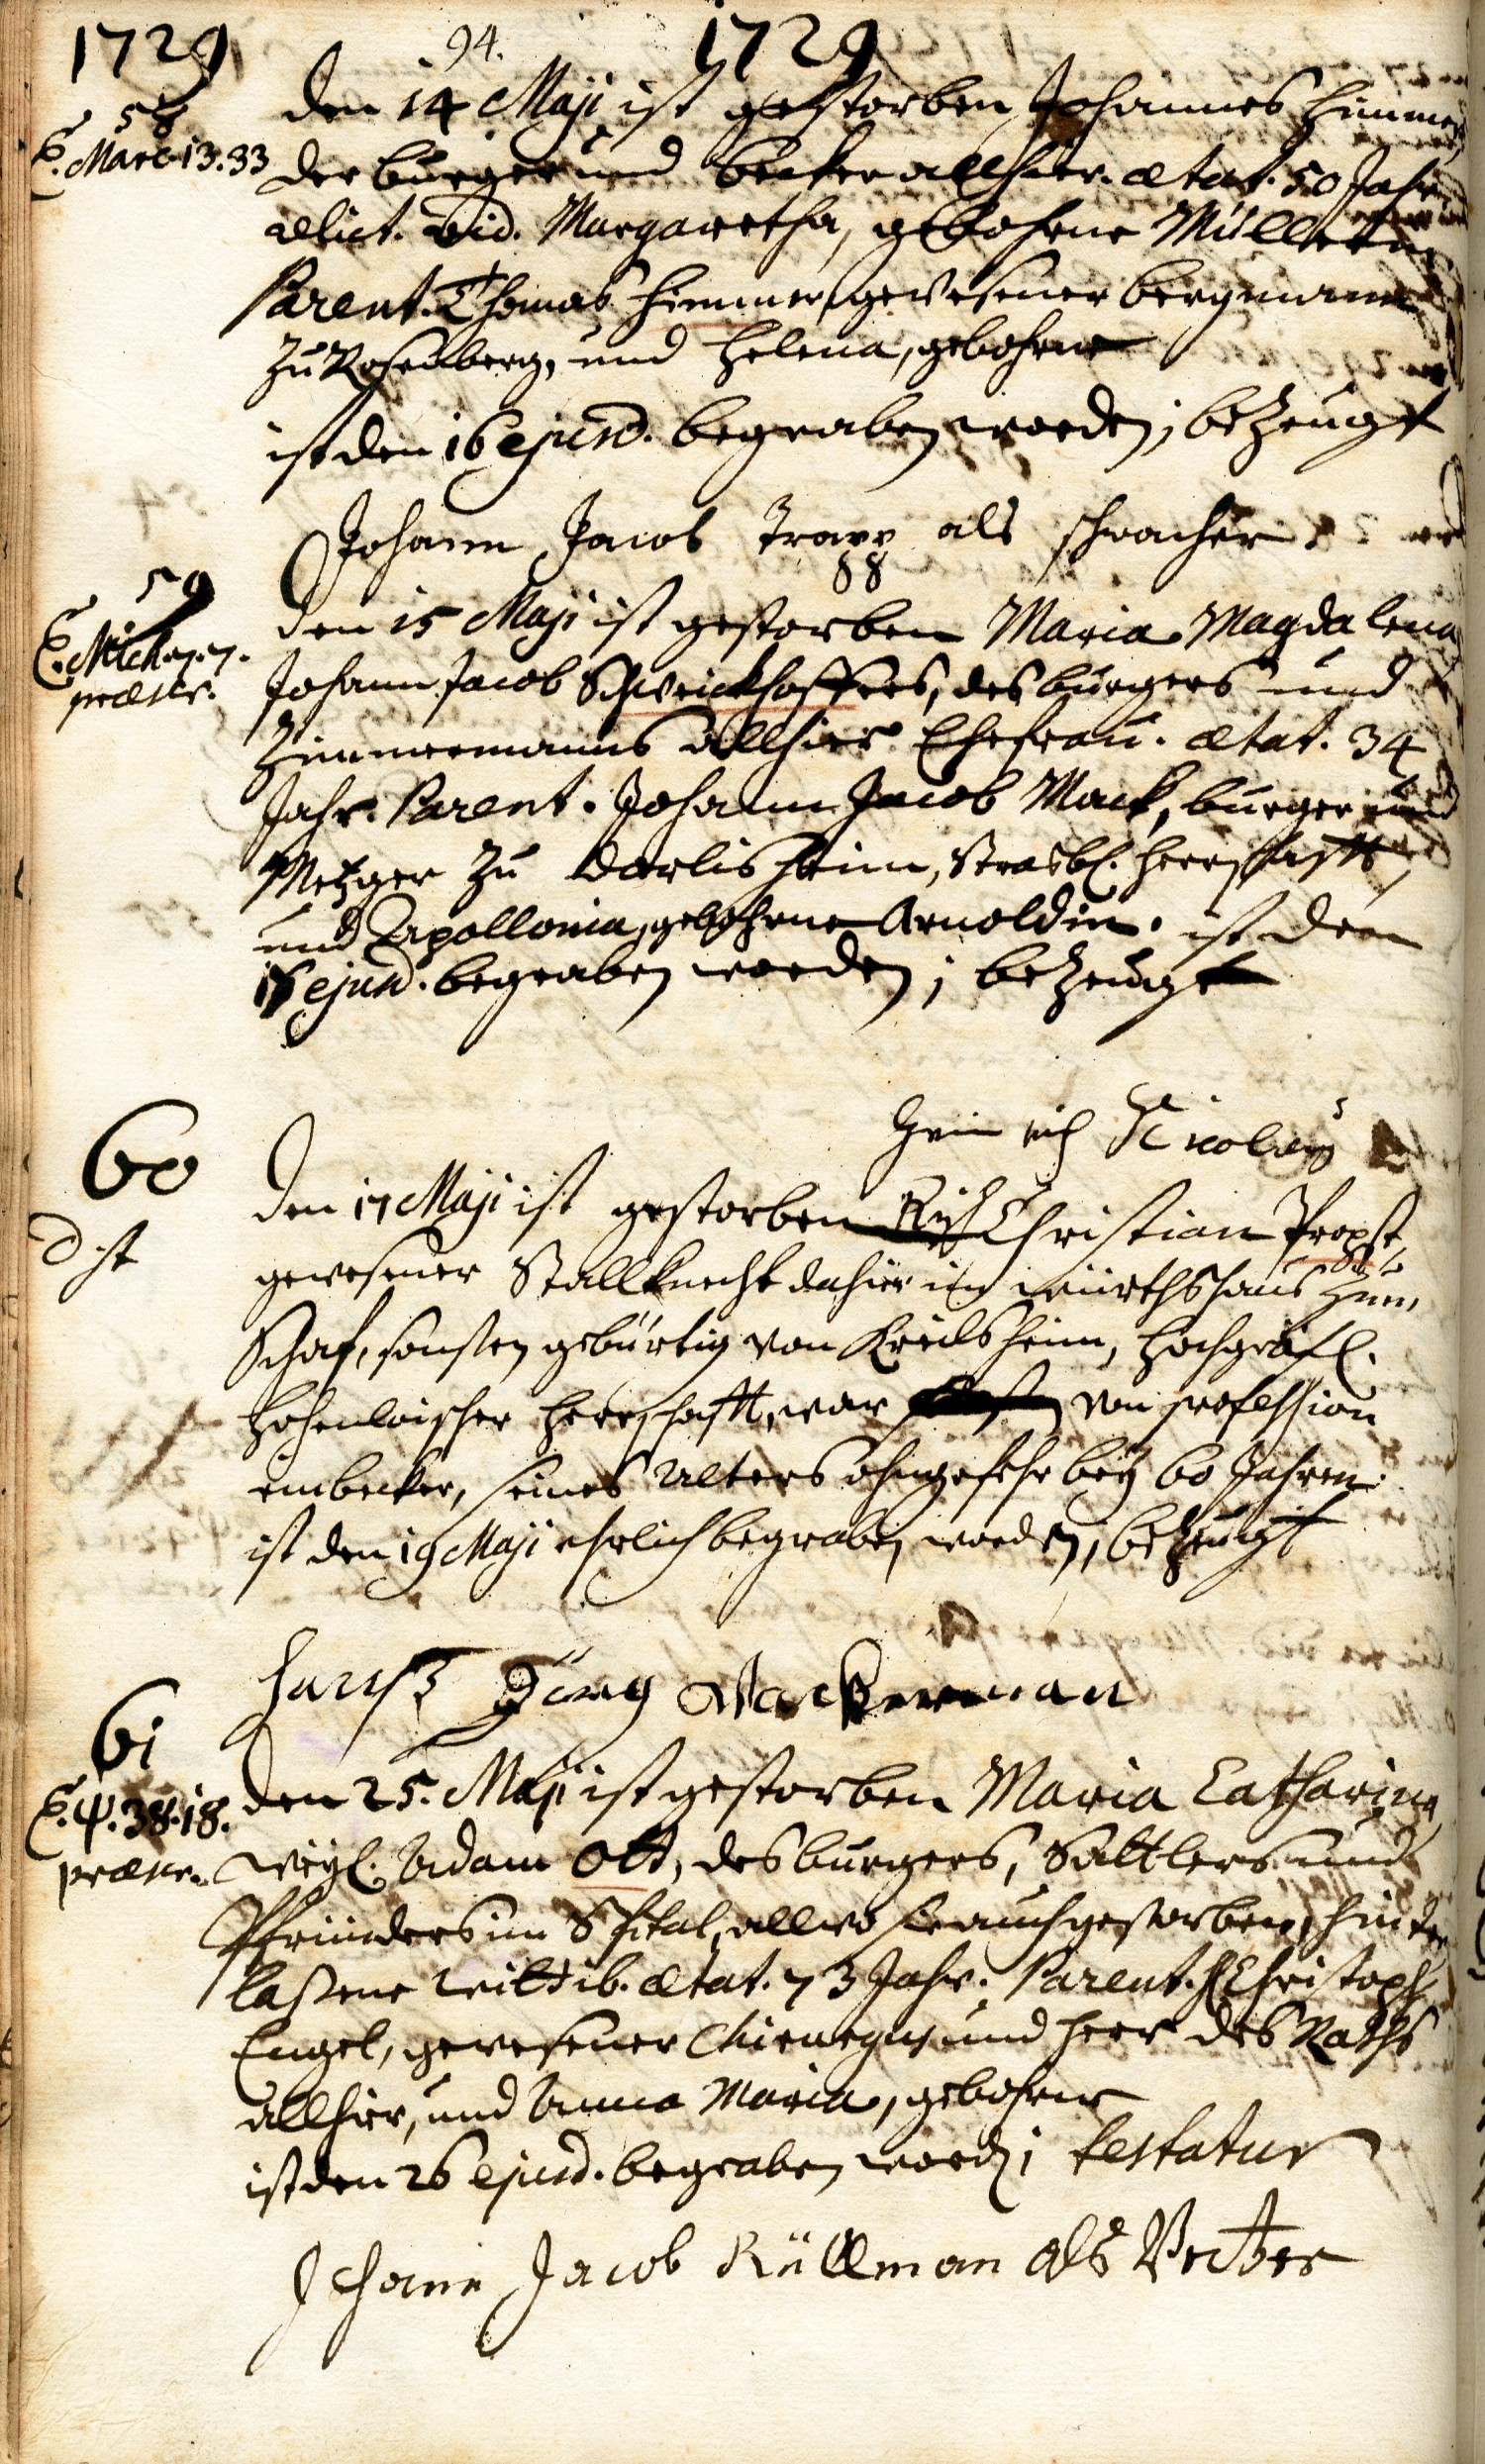 1729 94. 1729
58
T. Marc. 13. 33
Den 14 Maji ist gestorben Johannes Himmer
der burger und becker allhier. ætat. 50 Jahr
relict. vid. Margaretha, gebohrne Müllerin
Parent. Thomas Himmer, gewesener bergmann
zu Rosenberg, und Helena, gebohrne
ist den 16 ejusd. begraben worden; bezeugt
Johann Jacob Trapp als schwacher
59
T. Mich. 7. 7.
præscr.
Den 15 Maji ist gestorben Maria Magdalena
Johann Jacob Schweickhoffers, des burgers und
Zimmermanns allhier Ehefrau. ætat. 34
Jahr. Parent. Johann Jacob Mack, burger und
Metzger zu Dorlisheim, Strasbl. Herrschafft,
und Apollonia, gebohrne Arnoldin. ist den
16 ejusd. begraben worden; bezeugt
Heinrich Nicolay
60
dst
Den 17 Maji ist gestorben Christian Propst,
gewesener Stallknecht dahier im würthshaus zum
Schaf, sonsten gebürtig von Kreilsheim, Hochgräfl.
Hohenloischer Herrschafft, war von profession
ein becker, seines Alters ohngefehr bey 60 Jahren
ist den 19 Maji ehrlich begraben worden, bezeugt
Hanß Jörg Wackerman
61
T. ψ. 38. 18.
præscr.
Den 25. Maji ist gestorben Maria Catharina
weyl. Adam Ott, des burgers, Sattlers und
Pfründers im Spital, allwo sie auch gestorben, hinder
laßene Wittib. ætat. 73 Jahr. Parent. H. Christoph
Engel, gewesener Chirurgus und Herr des Raths
allhier, und Anna Maria, gebohrne
ist den 26 ejusd. begraben word; testatur
Johann Jacob Küllman als Vetter